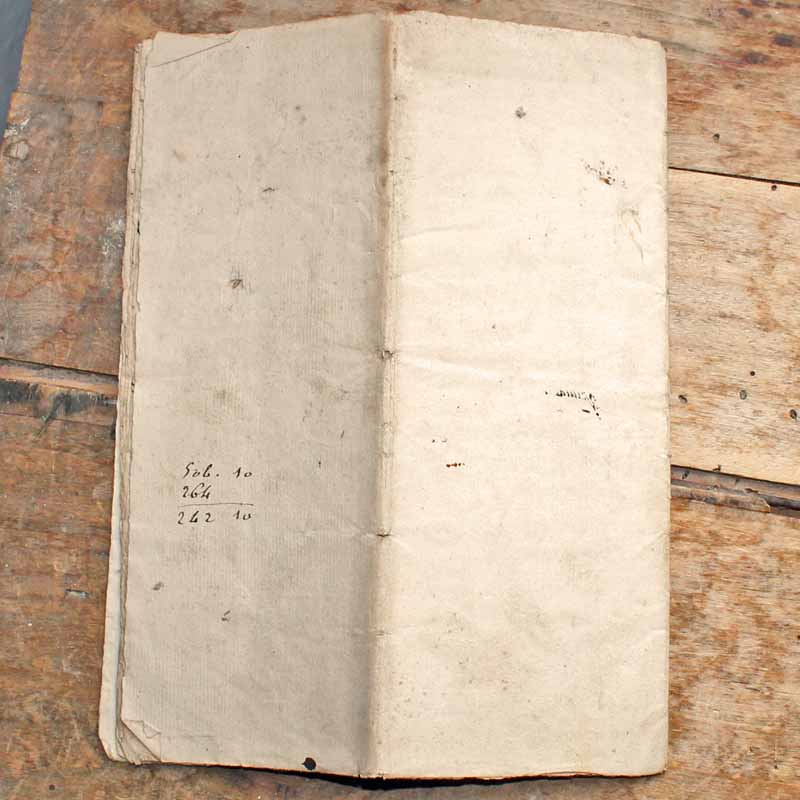 506. 10
264
242 10